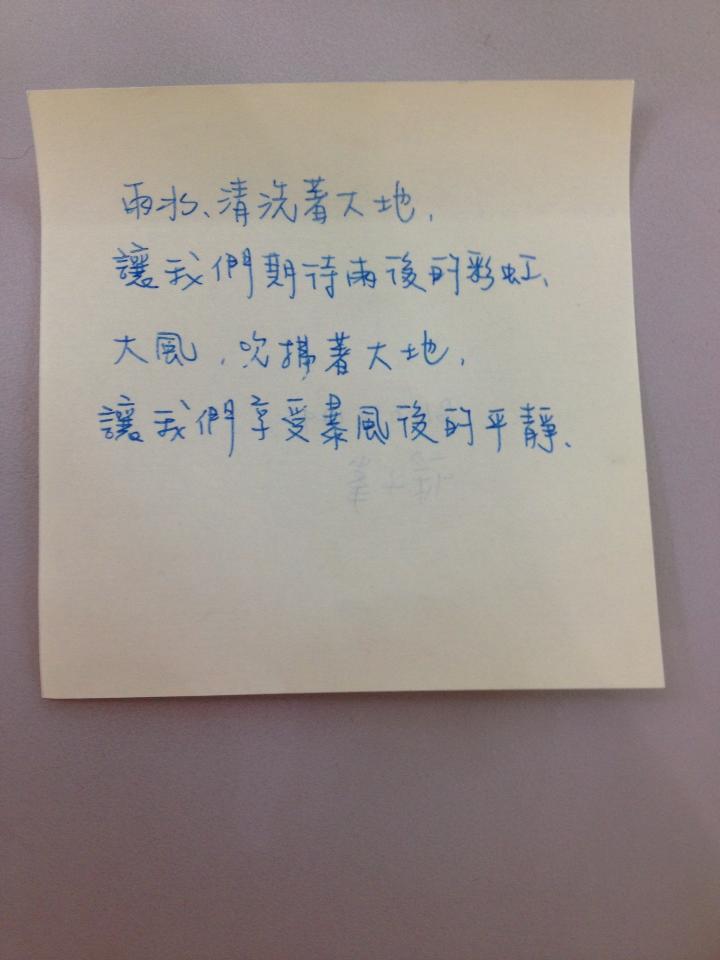 雨水、清洗著大地,
讓我們期待雨後的彩虹、
大風,吹掃著大地,
讓我們享受暴風後的平靜、